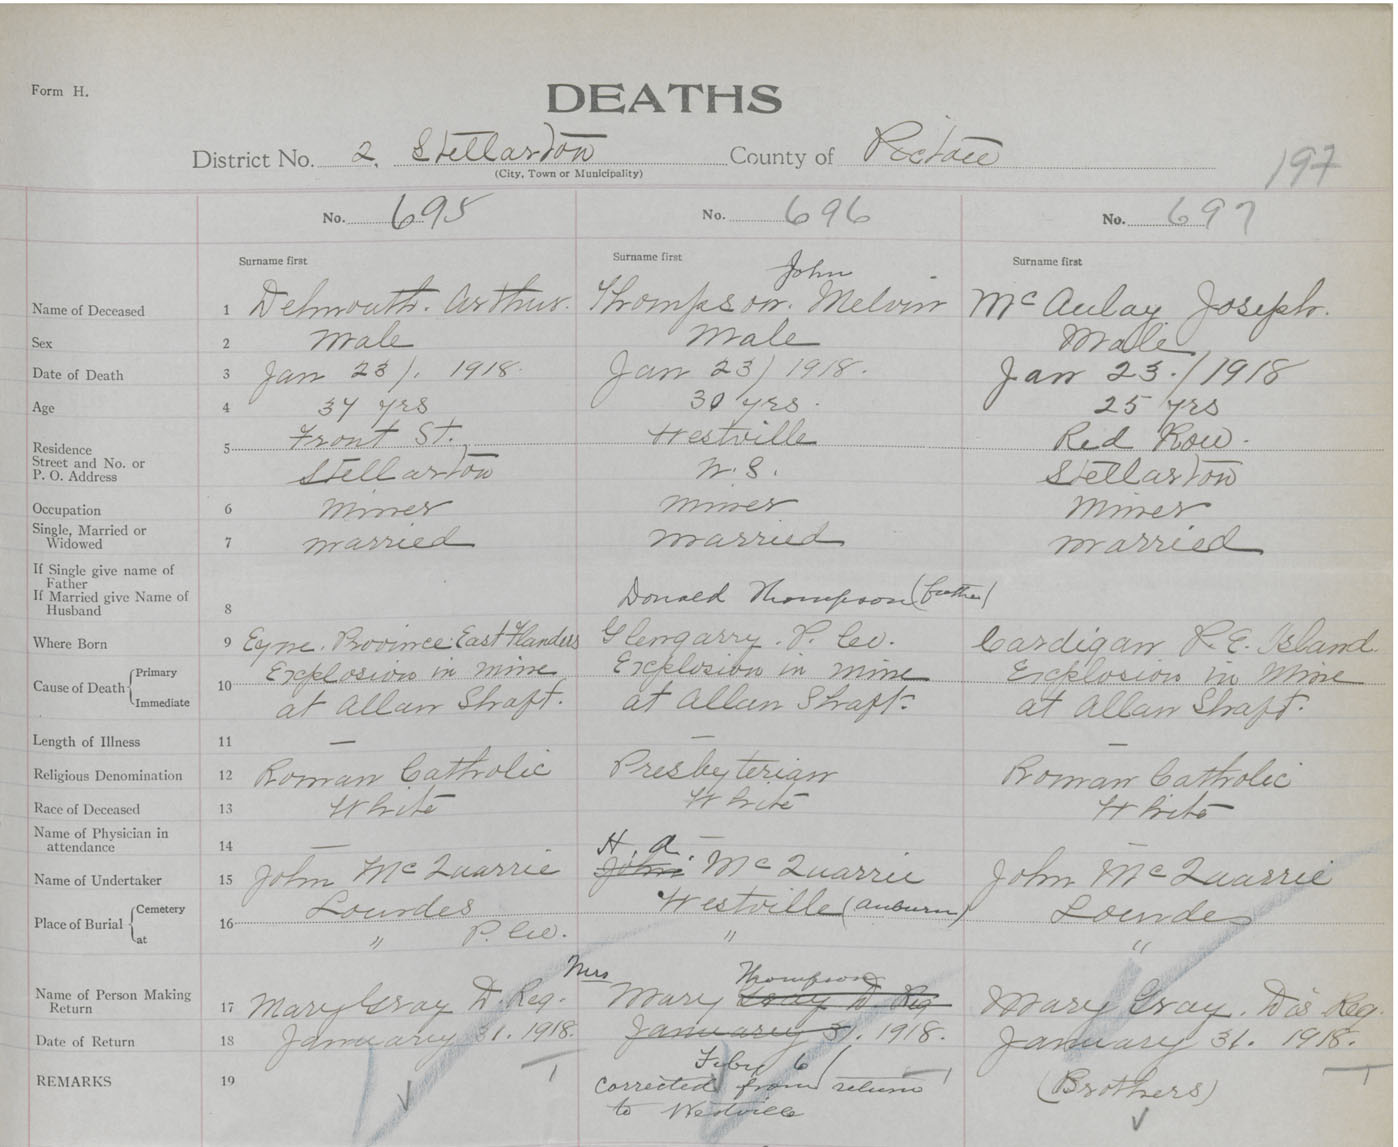 Form H.
DEATHS
District No. 2. Stellarton County of Pictou
(City, Town or Municipality)
197
No. 695 No. 696 No. 697
Surname first Surname first Surname first
John
Name of Deceased 1 Delmouth. Arthur. Thompson. Melvin McAulay Joseph.
Sex 2 Male Male Male
Date of Death 3 Jan 23/. 1918. Jan 23/1918. Jan 23./1918
Age 4 37 yrs 30 yrs. 25 yrs
Residence 5 Front St., Westville Red Row.
Street and No. or
P. O. Address Stellarton N.S. Stellarton
Occupation 6 Miner Miner Miner
Single, Married or
Widowed 7 Married Married Married
If Single give name of
Father
If Married give Name of
Husband 8 Donald Thompson (father)
Where Born 9 Eyne. Province East Flanders Glengarry. P. Co. Cardigan P.E. Island
Cause of Death Primary 10 Explosion in mine Explosion in mine Explosion in Mine
Immediate at Allan Shaft. at Allan Shaft. at Allan Shaft.
Length of Illness 11 — — —
Religious Denomination 12 Roman Catholic Presbyterian Roman Catholic
Race of Deceased 13 White White White
Name of Physician in
attendance 14 — — —
H. A.
Name of Undertaker 15 John McQuarrie John McQuarrie John McQuarrie
Place of Burial Cemetery 16 Lourdes Westville (Auburn) Lourdes
at " P. Co. " "
Mrs Thompson
Name of Person Making
Return 17 Mary Gray D. Reg. Mary Gray D. Reg Mary Gray. Dis Reg.
Date of Return 18 January 31. 1918. January 31. 1918. January 31. 1918.
Feby 6
REMARKS 19 corrected from return (Brothers)
to Westville